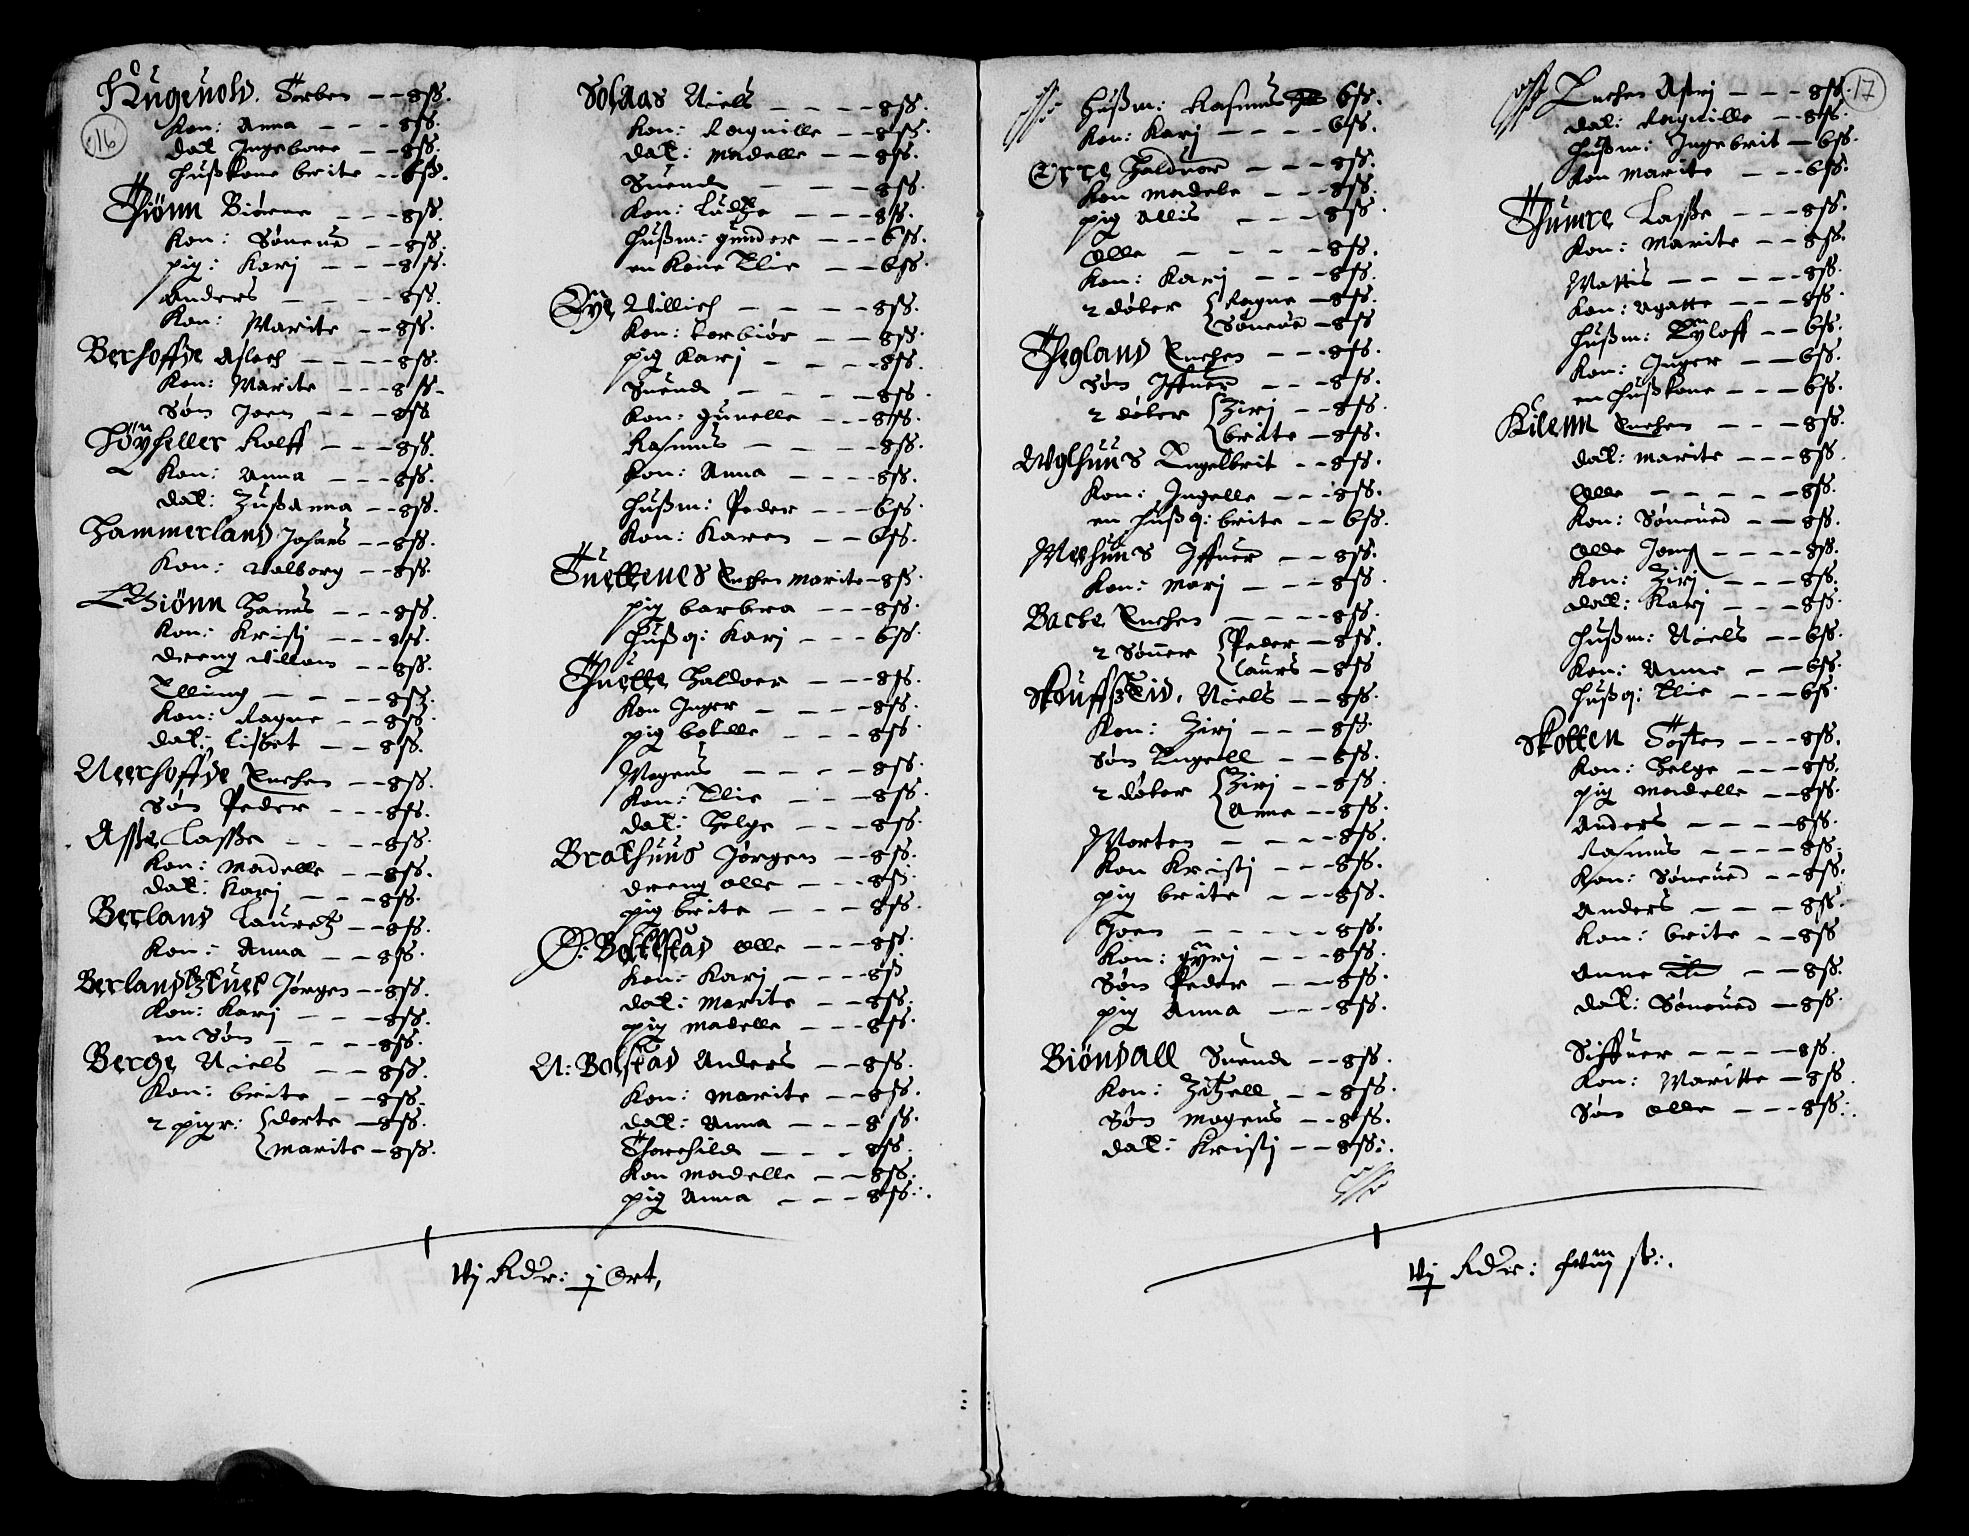 16
Kugenold. Torben - - 8 ß.
Kon: Anna - - - 8 ß.
dat Ingebore - - 8 ß.
Hußkone brite - - 6 ß.
Tiönn Biørne - - - 8 ß.
Kon: Søneue - - 8 ß.
pig: Karj - - - 8 ß.
Anders - - - - 8 ß.
Kon: Marite - - 8 ß.
Berhoffde Aslach - - - - 8 ß.
Kon: Marite - - - 8 ß.
Søn Joen - - - 8 ß
Höyheller Rolff - - - 8 ß.
Kon: Anna - - - 8 ß.
dat: Zußanna - - 8 ß.
Hammerland Johans - - 8 ß.
Kon: Valborg - - 8 ß.
Hans - - - 8 ß.
Kon: Kristj - - - 8 ß.
dreng Villom - - 8 ß.
Elling - - - - 8 ß.
Kon: Ragne - - 8 ß.
dat: Lisbet - - 8 ß.
Neerhoffde Enchen - - 8 ß.
Søn Peder - - - 8 ß.
Aße Laße - - - - 8 ß.
Kon: Madelle - - 8 ß.
dat: Karj - - - 8 ß.
Berland Lauretz - - 8 ß.
Kon: Anna - - 8 ß.
Jørgen - - 8 ß.
Kon: Karj - - - 8 ß.
en Søn - - - - 8 ß.
Berge Niels - - 8 ß.
Kon: brite - - 8 ß.
2 pigr: dorte - 8 ß.
Marite - 8 ß.
Solaas Niels - - - - 8 ß.
Kon: Ragnille - - 8 ß.
dat: Madelle - - 8 ß.
Suend - - - - 8 ß.
Kon: - - - 8 ß.
Hußm: gunder - - - 6 ß.
en Kone Elie - - 6 ß.
Öye Villich - - - - 8 ß.
Kon: Torbiör - - 8 ß.
pig Karj - - - - 8 ß.
Suend - - - - 8 ß
Kon: gunelle - - - 8 ß.
Rasmus - - - - 8 ß.
Kon: Anna - - - - 8 ß.
Hußm: Peder - - - 6 ß.
Kon: Karen - - 6 ß.
Tuettenes Enchen Marite - 8 ß.
pig barbra - - - 8 ß.
Huß q: Karj - - - 6 ß.
Tuette Haldoer - - - 8 ß.
Kon Inger - - - - 8 ß.
pig botelle - - - 8 ß.
Mogens - - - - 8 ß.
Kon: Elie - - - 8 ß.
dat: Helge - - - 8 ß.
Brathuus Jørgen - - 8 ß.
dreng olle - - - 8 ß.
pig brite - - - 8 ß.
Ø: Bolstad olle - - - 8 ß.
Kon: Karj - - - - 8 ß
dat: Marite - - 8 ß.
pig Madelle - - - 8 ß.
N: Bolstad Anders - - 8 ß.
Kon: Marite - - 8 ß.
dat: Anna - - - 8 ß.
Thorchild - - - 8 ß.
Kon Madelle - - 8 ß.
pig Anna - - - 8 ß.
Vj Rdr: j ort,
17
Hußm: Rasmus 6 ß.
Kon: Karj - - - - 6 ß.
Halduor - - - 8 ß.
Kon Madele - - - 8 ß.
pig Allis - - - 8 ß.
Olle - - - - - 8 ß.
Kon: Karj - - - 8 ß.
2 døtter Ragne - 8 ß.
Søneue - 8 ß
Thegland Enchen - - - 8 ß.
Søn Iffuer - - - 8 ß.
2 døtter Zirj - - 8 ß.
brite - 8 ß.
Engelbrit - - 8 ß.
Kon: Ingelle - - - 8 ß.
en Huß q: brite - - 6 ß.
Meehuus Iffuer - - 8 ß.
Kon: Marj - - - 8 ß.
Backe Enchen - - - - 8 ß.
2 Sønner Peder - 8 ß.
Laurs - 8 ß
Niels - - 8 ß.
Kon: Zirj - - - 8 ß.
Søn Engell - - 8 ß.
2 døtter Zirj - - 8 ß.
Anna - 8 ß.
Morten - - - - 8 ß.
Kon Kristj - - - 8 ß.
pig brite - - - 8 ß.
Joen - - - - - 8 ß.
Kon: gyrj - - - 8 ß.
Søn Peder - - - 8 ß.
pig Anna - - - 8 ß.
Biöndall Suend - - 8 ß.
Kon: Zitzell - - 8 ß.
Søn Mogens - - 8 ß.
dat: Kristj - - 8 ß.
Enchen Astrj - - - 8 ß.
dat: Ragnille - - 8 ß.
Hußm: Ingebrit - 6 ß.
Kon Marite - - - 6 ß.
Thumre Laße - - - 8 ß.
Kon: Marite - - 8 ß.
Mattis - - - - - 8 ß.
Kon: Agatte - - - 8 ß.
Hußm: - - 6 ß.
Kon: Inger - - 6 ß.
en Hußkone - - - 6 ß.
Kilenn Enchen - - - 8 ß.
dat: Marite - - - 8 ß.
Olle - - - - - 8 ß.
Kon: Søneued - - 8 ß.
Olle Jonß - - - - 8 ß.
Kon: Zirj - - - 8 ß.
dat: Karj - - - 8 ß.
Hußm: Niels - - 6 ß.
Kon: Anne - - 6 ß.
Huß q: Elie - - - 6 ß.
Skotten Tosten - - - 8 ß.
Kon: Helge - - - 8 ß.
pig Madelle - - 8 ß.
Anders - - - - 8 ß.
Rasmus - - - - 8 ß.
Kon: Søneued - - 8 ß.
Anders - - - - 8 ß.
Kon: brite - - 8 ß
Anne - - 8 ß.
dat: Søneued - 8 ß.
Siffuer - - - - 8 ß.
Kon: Maritte - 8 ß.
Søn olle - - - 8 ß.
Vj Rdr: